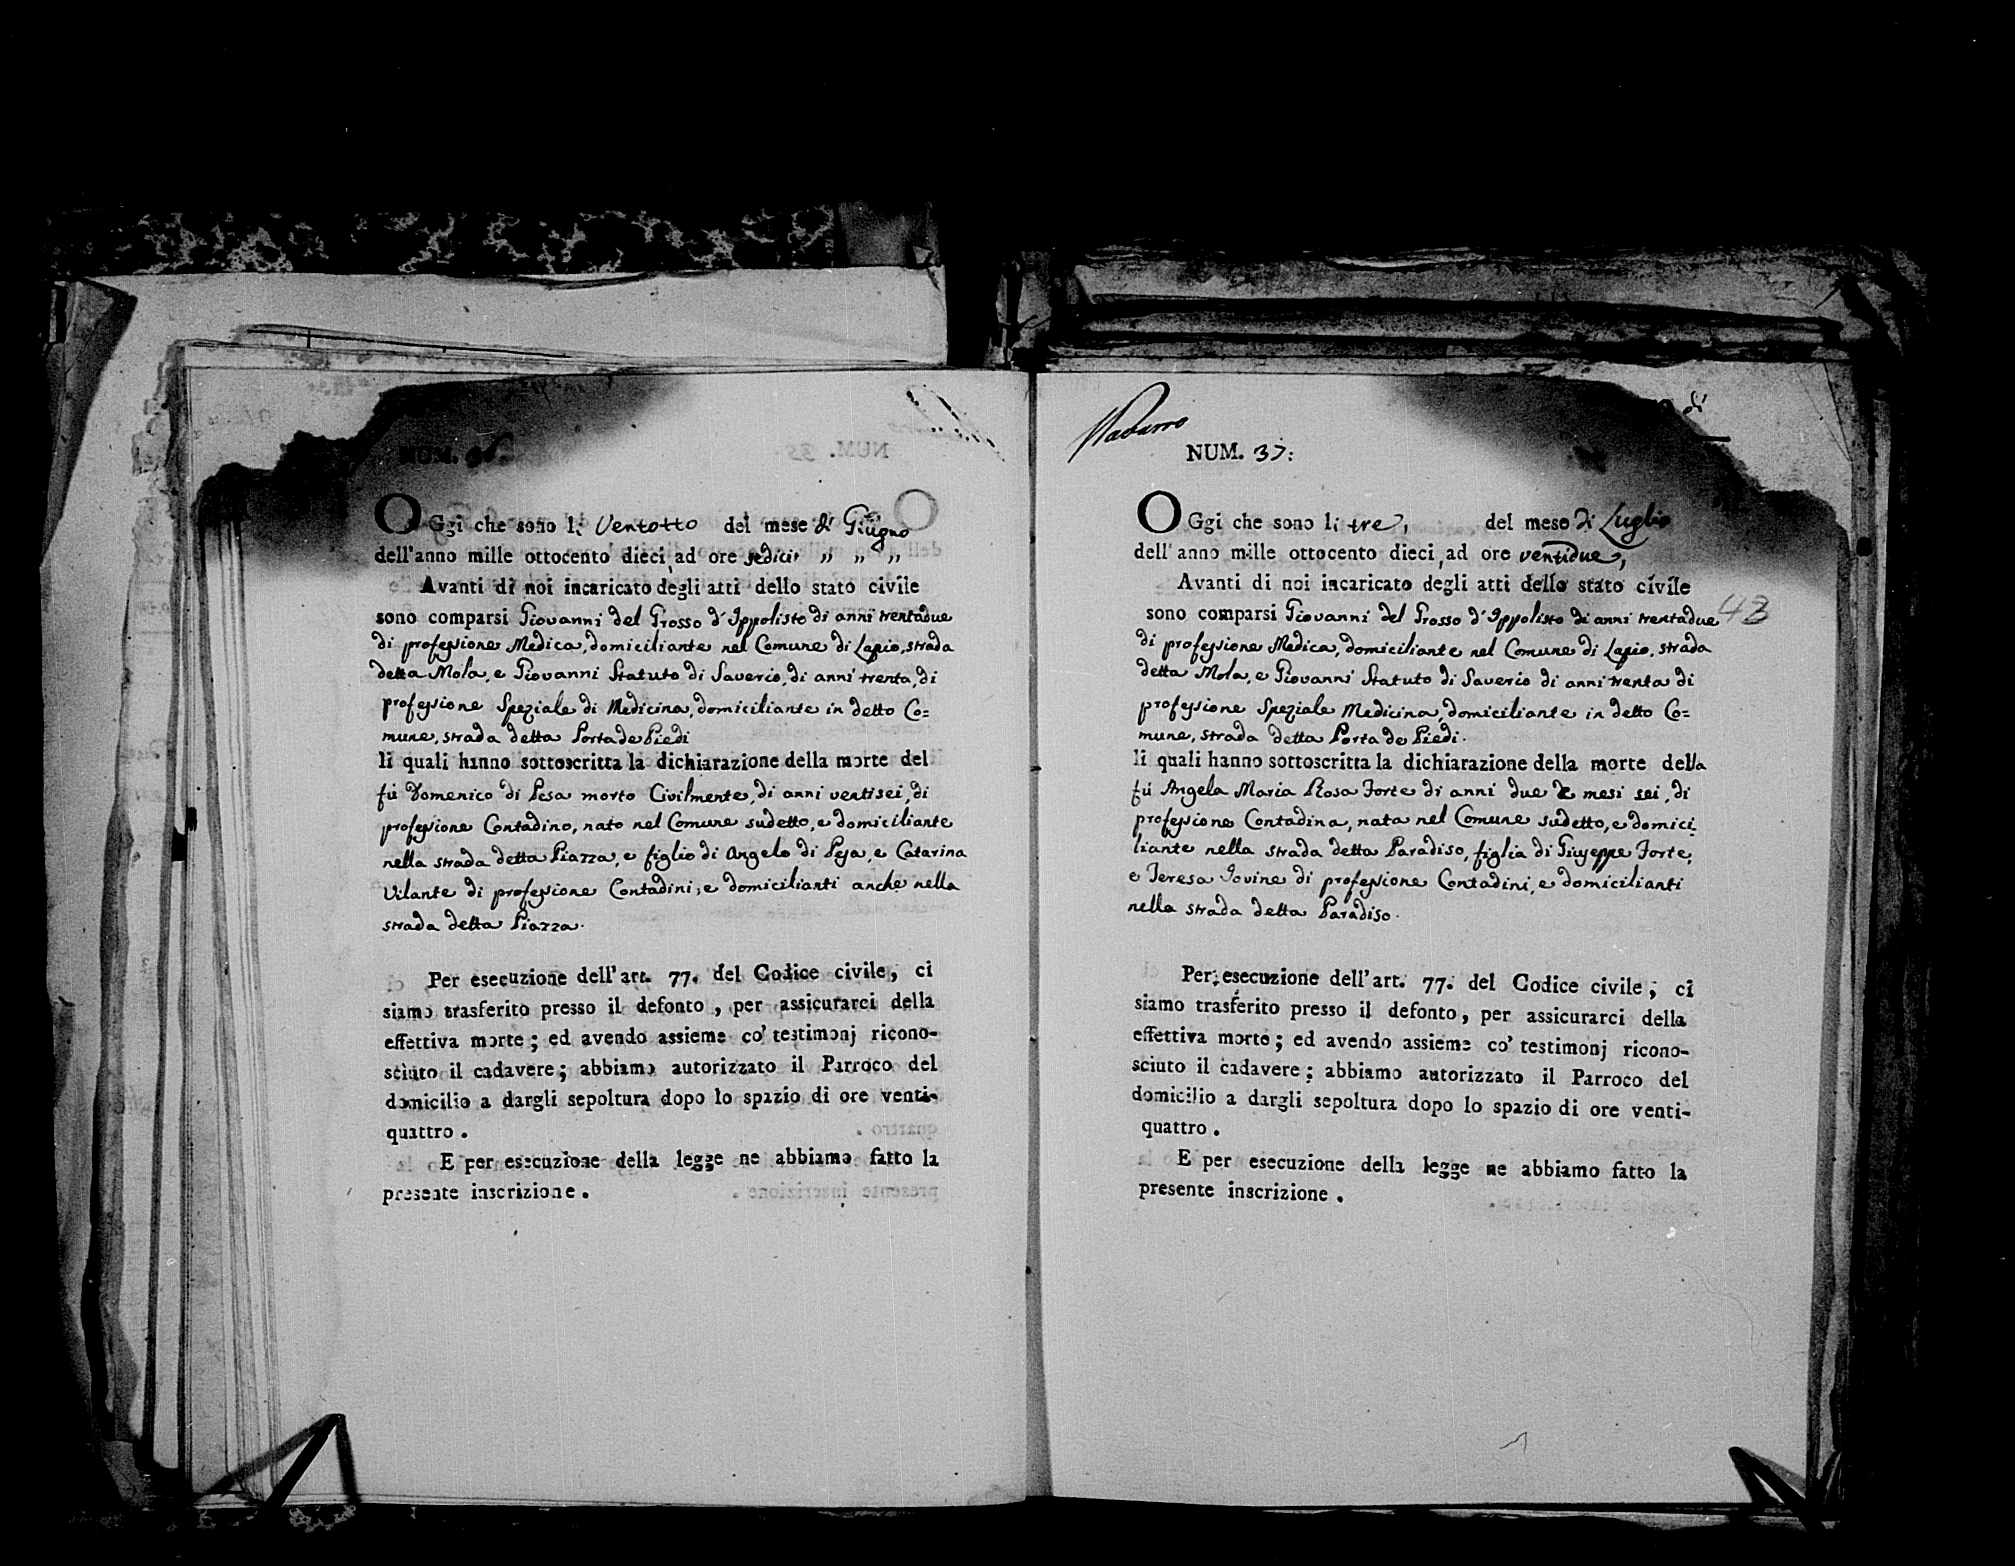 NUM. 36.
OGgi che sono li Ventotto del mese di Giugno
dell'anno mille ottocento dieci, ad ore sedici „ „ „
Avanti di noi incaricato degli atti dello stato civile
sono comparsi Giovanni del Grosso d'Ippolisto di anni trentadue
di professione Medica, domiciliante nel Comune di Lapio, strada
detta Mola, e Giovanni Statuto di Saverio, di anni trenta, di
professione Speziale di Medicina, domiciliante in detto Co=
mune, strada detta Porta de Piedi
li quali hanno sottoscritta la dichiarazione della morte del
fù Domenico di Pesa morto Civilmente, di anni ventisei, di
professione Contadino, nato nel Comune sudetto, e domiciliante
nella strada detta Piazza, e figlio di Angelo di Pesa, e Catarina
Vilante di professione Contadini, e domicilianti anche nella
strada detta Piazza.
Per esecuzione dell'art. 77. del Codice civile, ci
siamo trasferito presso il defonto, per assicurarci della
effettiva morte; ed avendo assieme co' testimonj ricono-
sciuto il cadavere; abbiamo autorizzato il Parroco del
domicilio a dargli sepoltura dopo lo spazio di ore venti-
quattro.
E per esecuzione della legge ne abbiamo fatto la
presente inscrizione.
Navarro
di
NUM. 37.
OGgi che sono li tre, del mese di Luglio
dell'anno mille ottocento dieci, ad ore ventidue,
Avanti di noi incaricato degli atti dello stato civile
sono comparsi Giovanni del Grosso d'Ippolisto di anni trentadue
43
di professione Medica, domiciliante nel Comune di Lapio, strada
detta Mola, e Giovanni Statuto di Saverio di anni trenta di
professione Speziale Medicina, domiciliante in detto Co=
mune, strada detta Porta de Piedi.
li quali hanno sottoscritta la dichiarazione della morte della
fù Angela Maria Rosa Forte di anni due e mesi sei, di
professione Contadina, nata nel Comune sudetto, e domici
liante nella strada detta Paradiso, figlia di Giuseppe Forte,
e Teresa Iovine di professione Contadini, e domicilianti
nella strada detta Paradiso.
Per esecuzione dell'art. 77. del Codice civile, ci
siamo trasferito presso il defonto, per assicurarci della
effettiva morte; ed avendo assieme co' testimonj ricono-
sciuto il cadavere; abbiamo autorizzato il Parroco del
domicilio a dargli sepoltura dopo lo spazio di ore venti-
quattro.
E per esecuzione della legge ne abbiamo fatto la
presente inscrizione.